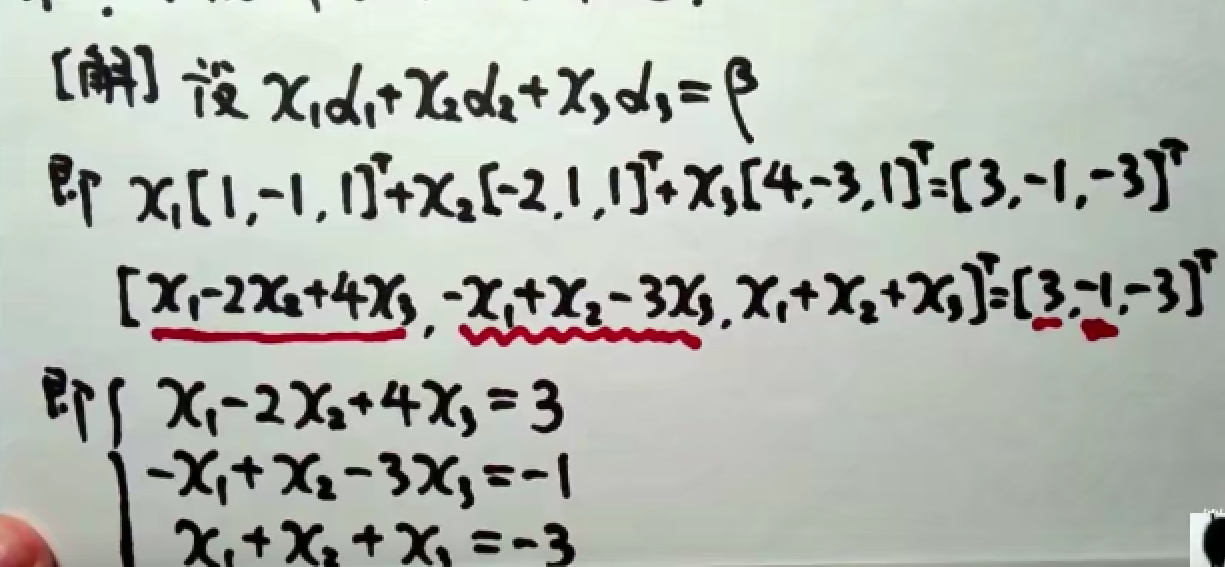 [解] 设 x₁α₁+x₂α₂+x₃α₃=β
即 x₁[1,-1,1]ᵀ+x₂[-2,1,1]ᵀ+x₃[4,-3,1]ᵀ=[3,-1,-3]ᵀ
[x₁-2x₂+4x₃,-x₁+x₂-3x₃,x₁+x₂+x₃]ᵀ=[3,-1,-3]ᵀ
即{ x₁-2x₂+4x₃=3
-x₁+x₂-3x₃=-1
x₁+x₂+x₃=-3